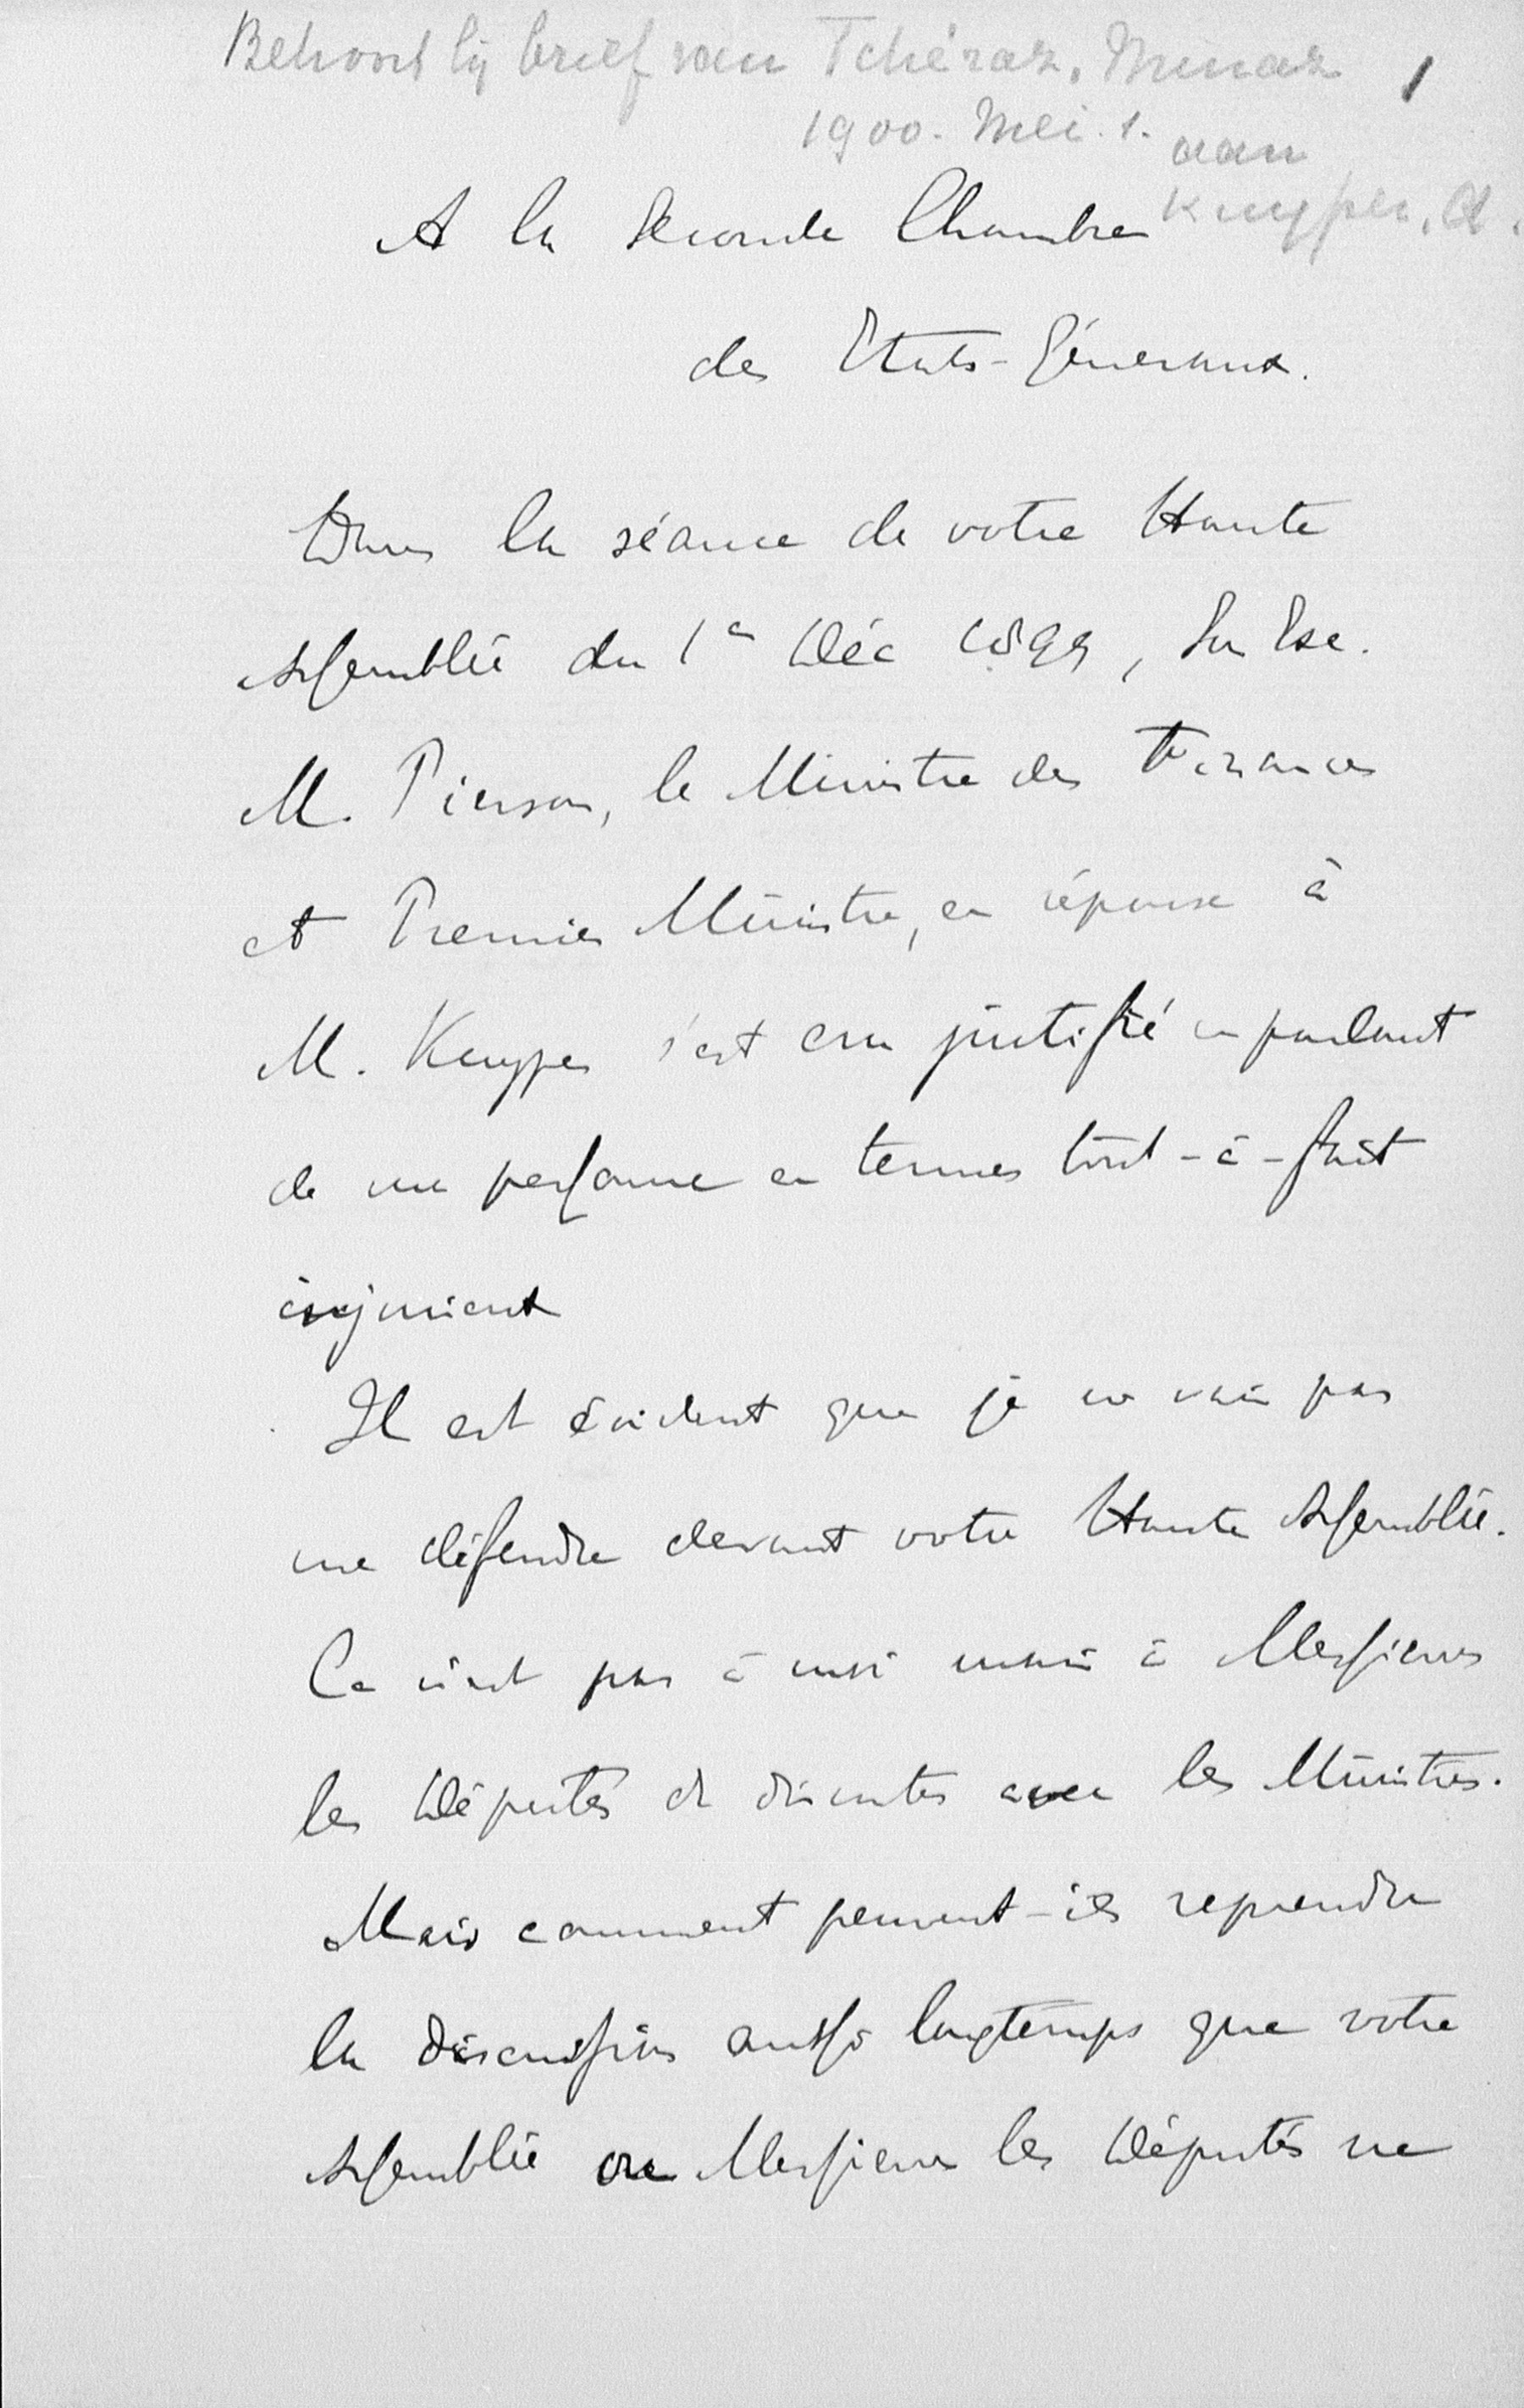 Behoort bij brief van Tchéraz, Minas 1
1900. Mei. 1. aan
Kuyper, A.
A la Seconde Chambre
des Etats-Généraux.
Dans la séance de votre Haute
Assemblée du 1er Déc 1899, Son Exc.
M. Pierson, le Ministre des Finances
et Premier Ministre, en réponse à
M. Kuyper s'est cru justifié en parlant
de ma personne en termes tout-à-fait
injurieux
Il est évident que je ne vais pas
me défendre devant votre Haute Assemblée.
Ce n'est pas à moi mais à Messieurs
les Députés de discuter avec les Ministres.
Mais comment peuvent-ils reprendre
la discussion aussi longtemps que votre
Assemblée ou Messieurs les Députés ne